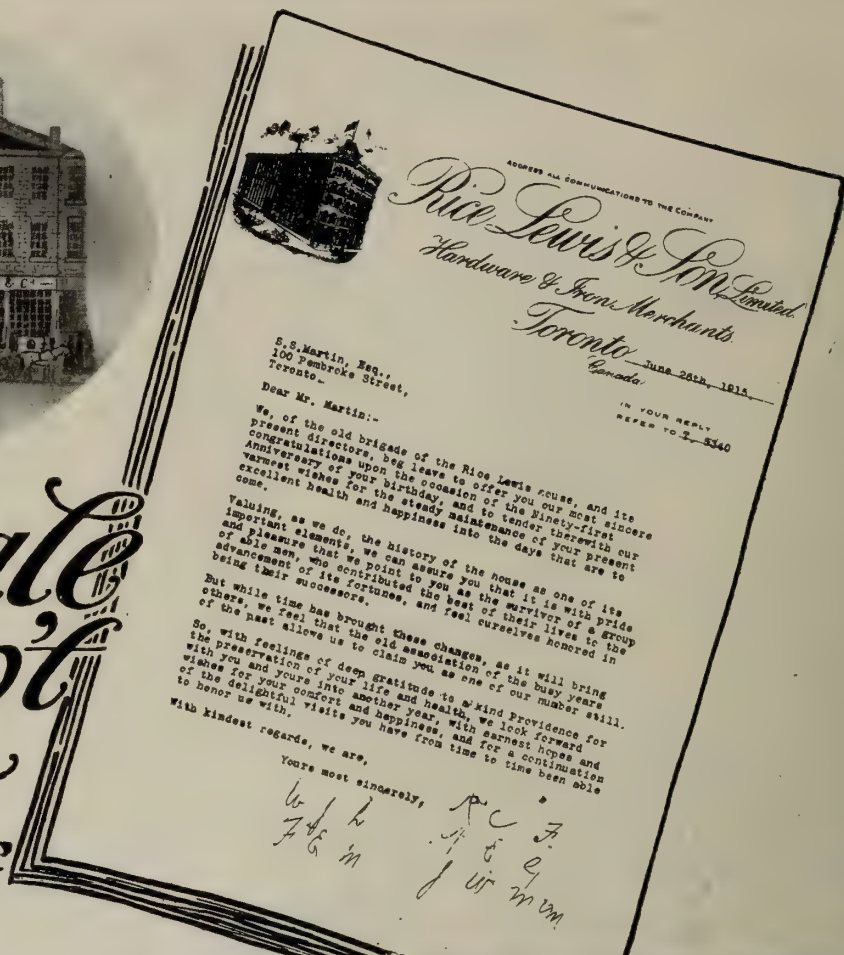 & Co
ale
o't
ADDRESS ALL COMMUNICATIONS TO THE COMPANY
Rice Lewis & Son Limited
Hardware & Iron Merchants.
Toronto
Canada
June 26th, 1915.
IN YOUR REPLY
REFER TO 5340
S.S.Martin, Esq.,
100 Pembroke Street,
Toronto.
Dear Mr. Martin:-
We, of the old brigade of the Rice Lewis house, and its
present directors, beg leave to offer you our most sincere
congratulations upon the occasion of the Ninety-first
Anniversary of your birthday, and to tender therewith our
warmest wishes for the steady maintenance of your present
excellent health and happiness into the days that are to
come.
Valuing, as we do, the history of the house as one of its
important elements, we can assure you that it is with pride
and pleasure that we point to you as the survivor of a group
of able men, who contributed the best of their lives to the
advancement of its fortunes, and feel ourselves honored in
being their successors.
But while time has brought these changes, as it will bring
others, we feel that the old association of the busy years
of the past allows us to claim you as one of our number still.
So, with feelings of deep gratitude to a kind Providence for
the preservation of your life and health, we look forward
with you and yours into another year, with earnest hopes and
wishes for your comfort and happiness, and for a continuation
of the delightful visits you have from time to time been able
to honor us with.
With kindest regards, we are,
Yours most sincerely,
R C F.